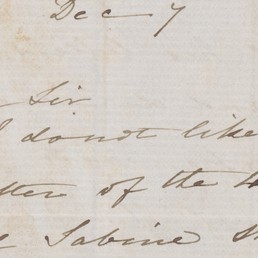 Dec 7
Sir
I do not like
of the
Sabine